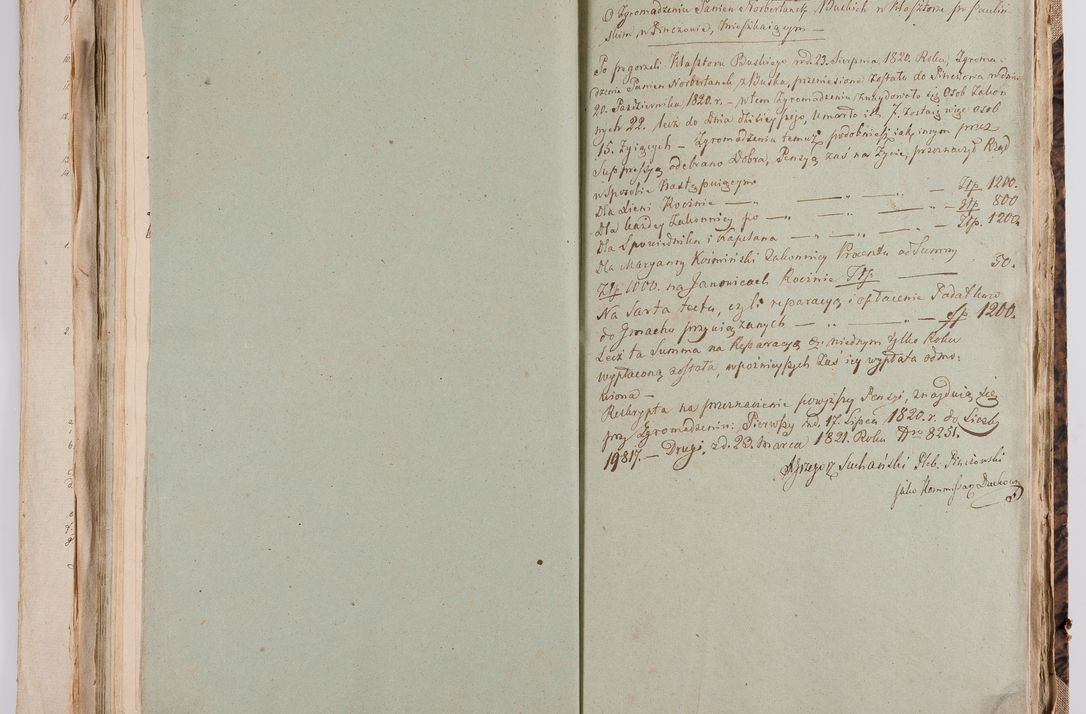 O Zgromadzeniu Panien Norbertanek Buskich w Klasztorze po Pauliń
skim w Pinczowie, mieszkaiącym —
Po pogorzeli Klasztoru Buskiego w d. 23. Sierpnia 1820. Roku, Zgroma
dzenie Panien Norbertanek z Buska, przeniesione zostało do Pinczowa w dniu
20. Pazdziernika 1820. r. – w tem Zgromadzeniu znaydowało się Osob Zakon
nych 22. lecz do dnia dzisieyszego, umarło ich 7. zostaie więc osob
15. żyiących – Zgromadzeniu temuż podobnież iak innym przez
Suppressyą odebrano Dobra, Pensyą zaś na życie, przeznaczył Rząd
w sposobie następuiącym
Dla Xieni Rocznie — „ — „ — Złp. 1200.
Dla każdey Zakonnicy po — „ — „ — Złp. 800
Dla Spowiednika i Kapelana — „ — „ — Złp. 1200.
Dla Maryanny Koźmiński Zakonnicy Procentu od Summy
Złp. 1000. na Janowicach Rocznie Złp. — 50.
Na Sarta tecta, czyli reparacyą i opłacenie Podatkow
do Gmachu przywiązanych — „ — „ — złp. 1200.
Lecz ta Summa na Reparacyą w iednym tylko Roku
wypłaconą została, w poźnieyszych zaś iey wypłata odmo:
wiona —
Reskrypta na przeznaczenie powyższey Pensyi, znayduią się
przy Zgromadzeniu: Pierwszy z d. 17. Lipca 1820. r. do Liczby
19817. — Drugi, z d. 23. Marca 1821. Roku Nro 8251.
X Grzegorz Suchański Pleb. Pinczowski
jako Kommissarz Duchowny